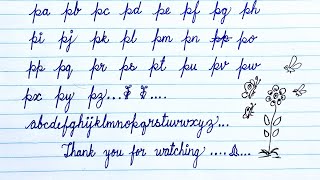 pa pb pc pd pe pf pg ph
pi pj pk pl pm pn po
pp pq pr ps pt pu pv pw
px py pz...
abcdefghijklmnopqrstuvwxyz...
Thank you for watching ....